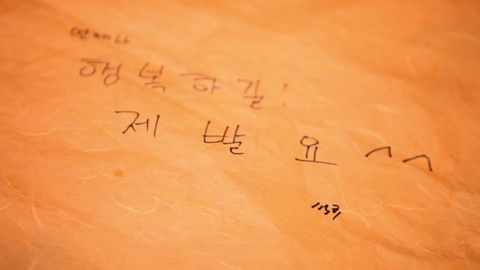 언제나
행복하길!
제 발 요 ^^